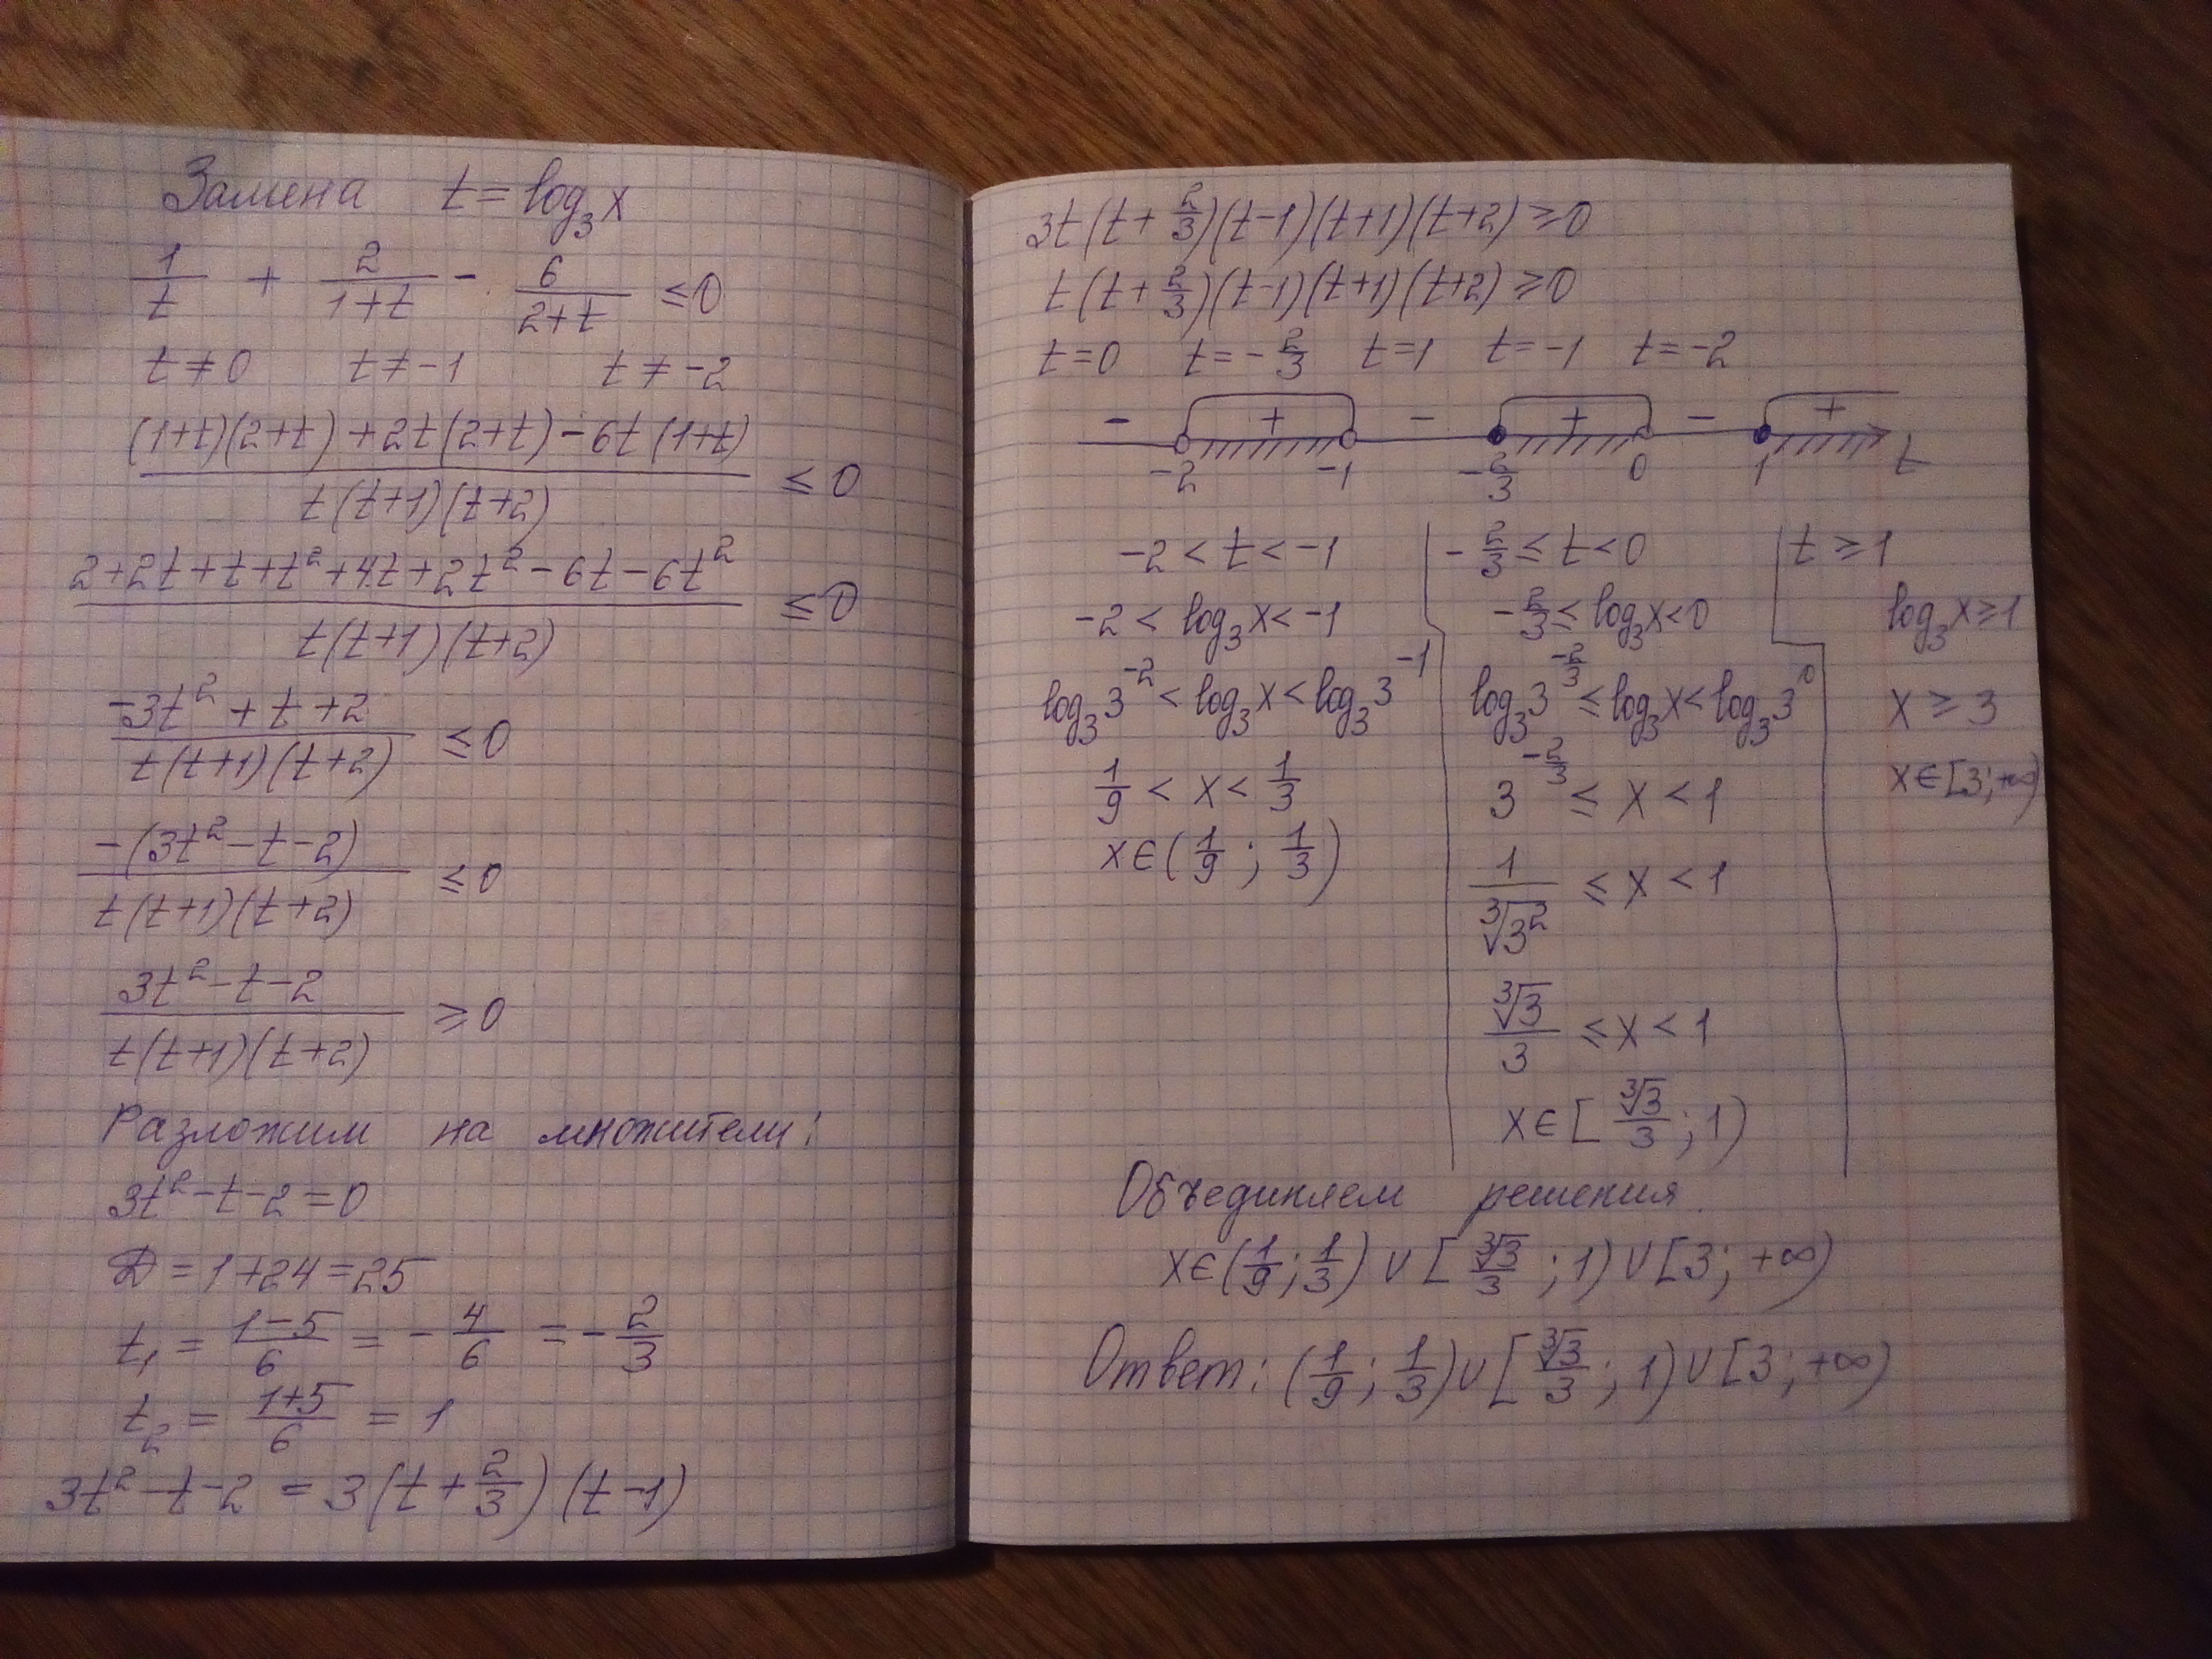 Замена t = log₃x
1/t + 2/(1+t) - 6/(2+t) ≤ 0
t ≠ 0 t ≠ -1 t ≠ -2
((1+t)(2+t) + 2t(2+t) - 6t(1+t)) / (t(t+1)(t+2)) ≤ 0
(2+2t+t+t²+4t+2t²-6t-6t²) / (t(t+1)(t+2)) ≤ 0
(-3t²+t+2) / (t(t+1)(t+2)) ≤ 0
(-(3t²-t-2)) / (t(t+1)(t+2)) ≤ 0
(3t²-t-2) / (t(t+1)(t+2)) ≥ 0
Разложим на множители:
3t²-t-2=0
D = 1+24 = 25
t₁ = (1-5)/6 = -4/6 = -2/3
t₂ = (1+5)/6 = 1
3t²-t-2 = 3(t+2/3)(t-1)
3t(t+2/3)(t-1)(t+1)(t+2) ≥ 0
t(t+2/3)(t-1)(t+1)(t+2) ≥ 0
t=0 t=-2/3 t=1 t=-1 t=-2
- + - + - +
-2 -1 -2/3 0 1 t
-2 < t < -1
-2 < log₃x < -1
log₃3⁻² < log₃x < log₃3⁻¹
1/9 < x < 1/3
x∈(1/9; 1/3)
-2/3 ≤ t < 0
-2/3 ≤ log₃x < 0
log₃3^(-2/3) ≤ log₃x < log₃3⁰
3^(-2/3) ≤ x < 1
1/∛3² ≤ x < 1
∛3/3 ≤ x < 1
x∈[∛3/3; 1)
t ≥ 1
log₃x ≥ 1
x ≥ 3
x∈[3; +∞)
Объединяем решения.
x∈(1/9; 1/3) ∪ [∛3/3; 1) ∪ [3; +∞)
Ответ: (1/9; 1/3) ∪ [∛3/3; 1) ∪ [3; +∞)